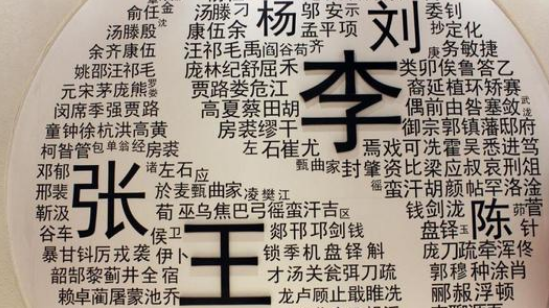 俞任
汤滕刁
杨
邬安示
刘
委钊
汤滕殷
康伍余
孟平项
抄定化
余齐康伍
汪祁毛禹
阎谷苟
齐
务敏捷
姚邵汪祁毛
庞林纪舒屈禾
李
类卯俟鲁答乙
元宋茅庞熊
贾路娄危江
裔延植环矫赛
闵席季强贾路
高夏蔡田胡
偶前由昝塞敛
童钟徐杭洪高黄
房裘缪干
御宗郭镇藩邸府
柯昝管
包单翁经
房裘
左
石崔尤
焉戏可洗霍吴悉进笃
邓郁
诸
左石
应
甄曲家
封肇资比梁胡哀刑俎
邢裴
张
於麦甄曲家
凌樊江
徭
蛮汗梁胡颜帖罕洛淦
靳汲
荀
巫乌焦巴弓徭蛮汗吉
区
钱剑泷
陈
茆
菅
谷车
侯
卫
王
郯邗邛剑钱
盘铎
玉
针
暴甘钭厉戎袭
伊卜
锁季机盘铎斛
庞刀疏牵浑佟
韶郜黎蓟井全宿
才汤关瓮弭刀疏
郭穆种涂肖
赖卓蔺屠蒙池乔
龙卢顾止敢睢冼
郦赧浮顿